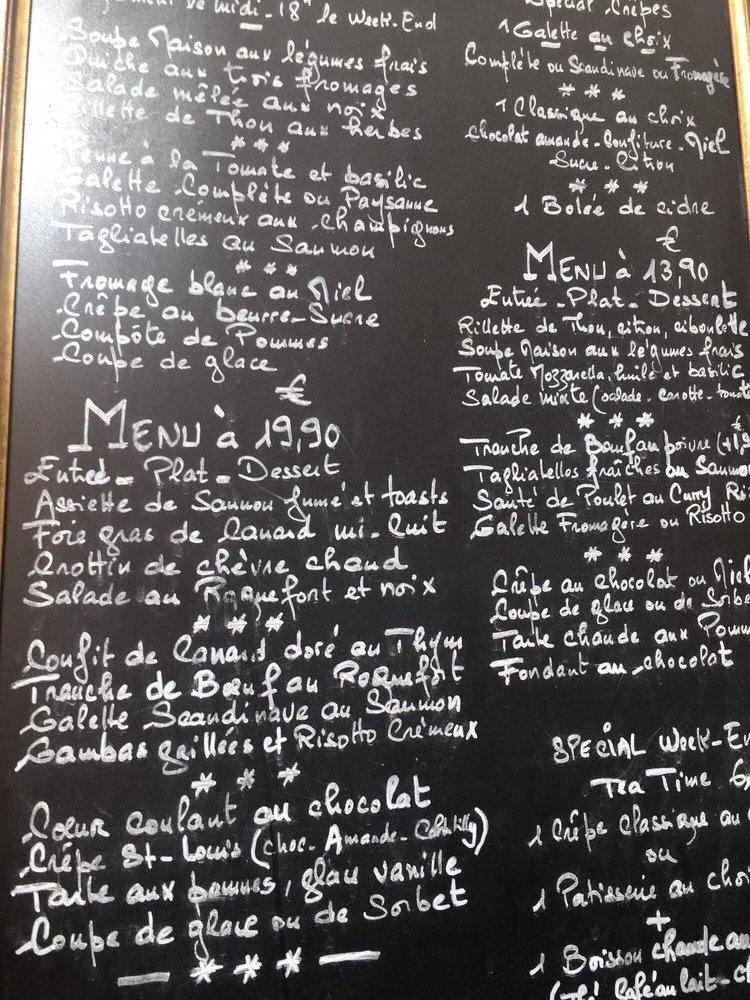 de midi - 18" le Week-End
Soupe Maison aux légumes frais
Quiche aux trois fromages
Salade mêlée aux noix
Rillette de Thon aux herbes
***
Penne à la Tomate et basilic
Galette Complète ou Paysanne
Risotto crémeux aux champignons
Tagliatelles au Saumon
***
Fromage blanc au Miel
Crêpe au beurre-Sucre
Compôte de Pommes
Coupe de glace
€
MENU à 19,90
Entrée - Plat - Dessert
Assiette de Saumon fumé et toasts
Foie gras de Canard mi-Cuit
Crottin de chèvre chaud
Salade au Roquefort et noix
***
Confit de Canard doré au Thym
Tranche de Bœuf au Roquefort
Galette Scandinave au Saumon
Gambas grillées et Risotto Crémeux
***
Cœur coulant au chocolat
Crêpe St-Louis (choc-Amande-Chantilly)
Tarte aux pommes, glace vanille
Coupe de glace ou de Sorbet
— *** —
Spécial Crêpes
1 Galette au choix
Complète ou Scandinave ou Fromagère
***
1 Classique au choix
Chocolat amande-Confiture-Miel
Sucre-Citron
***
1 Bolée de cidre
€
MENU à 13,90
Entrée - Plat - Dessert
Rillette de Thon, citron, ciboulette
Soupe Maison aux légumes frais
Tomate Mozzarella, huile et basilic
Salade mixte (salade-carotte-tomat
***
Tranche de Bœuf au poivre (+1,
Tagliatelles fraîches au Saumo
Sauté de Poulet au Curry, Ri
Galette Fromagère ou Risotto
***
Crêpe au chocolat ou Miel
Coupe de glace ou de Sorbe
Tarte chaude aux Pomm
Fondant au chocolat
SPECIAL Week-En
Tea Time
1 Crêpe classique au
ou
1 Patisserie au choi
+
1 Boisson chaude au
(Thé, Café au lait-c